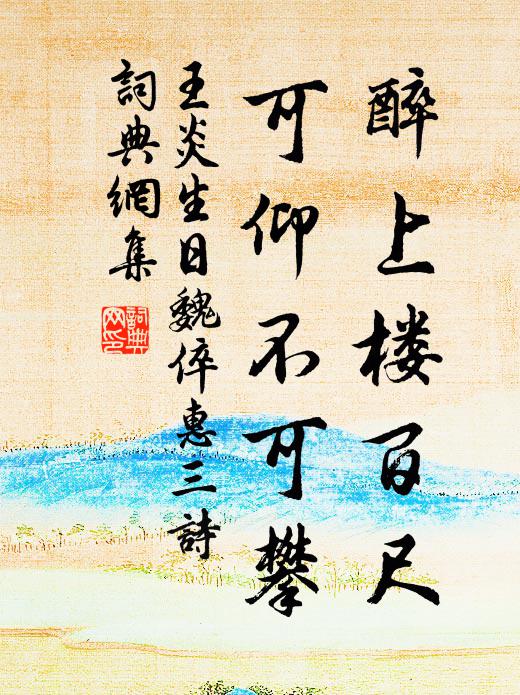 醉上楼百尺
可仰不可攀
王炎生日魏倅惠三詩
詞典網集
詞典网印